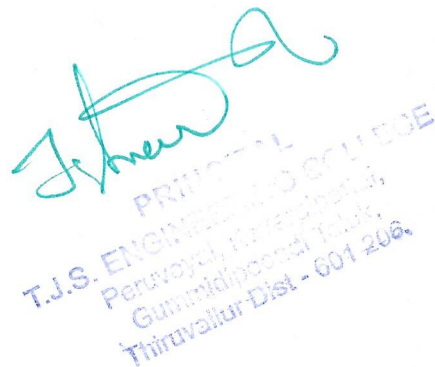 PRINCIPAL
T.J.S. ENGINEERING COLLEGE
Peruvoyal,
Gummidipoondi Taluk,
Thiruvallur Dist - 601 206.